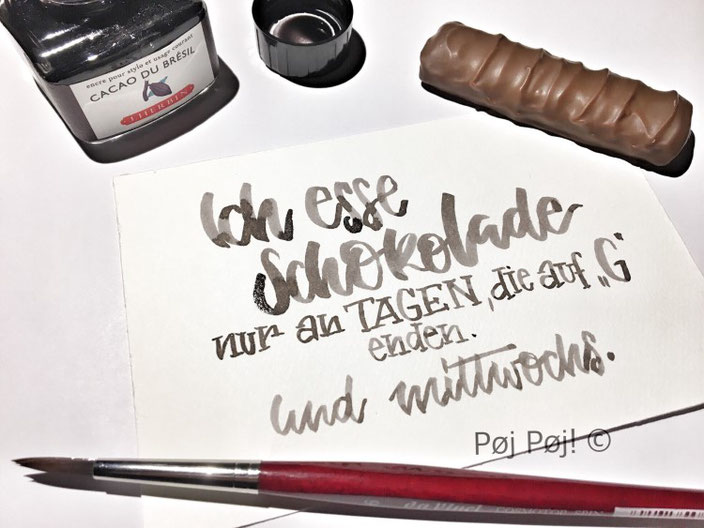 encre pour stylo et usage courant
CACAO DU BRÉSIL
J.HERBIN
Ich esse
Schokolade
nur an TAGEN, die auf „G“
enden.
und mittwochs.
Pøj Pøj! ©
da Vinci